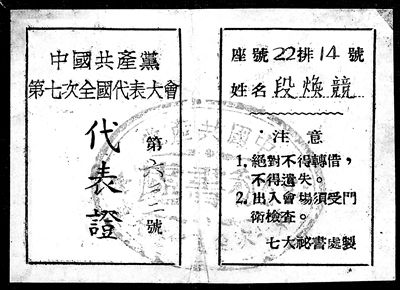 中國共產黨
第七次全國代表大會
代表證
第六二二號
座號22排14號
姓名段煥競
注意
1. 絕對不得轉借，
不得遺失。
2. 出入會場須受門
衛檢查。
七大祕書處製